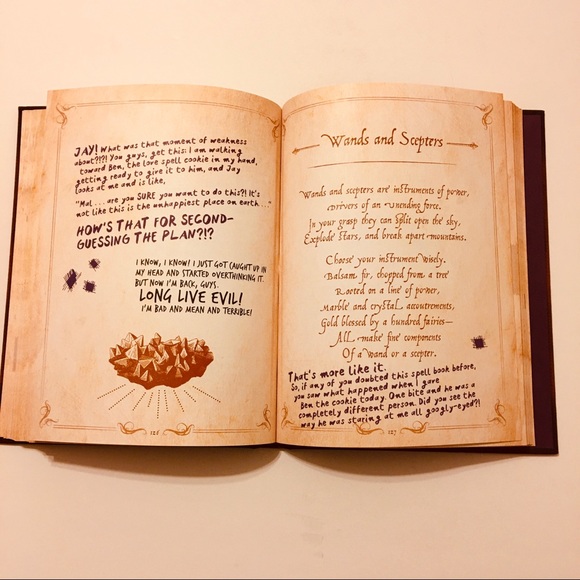 JAY! What was that moment of weakness
about?!?! You guys, get this: I am walking
toward Ben, the love spell cookie in my hand,
getting ready to give it to him, and Jay
looks at me and is like,
"Mal . . . are you SURE you want to do this?! It's
not like this is the unhappiest place on earth..."
HOW'S THAT FOR SECOND-
GUESSING THE PLAN?!?
I KNOW, I KNOW! I JUST GOT CAUGHT UP IN
MY HEAD AND STARTED OVERTHINKING IT.
BUT NOW I'M BACK, GUYS.
LONG LIVE EVIL!
I'M BAD AND MEAN AND TERRIBLE!
126
Wands and Scepters
Wands and scepters are instruments of power,
Drivers of an unending force.
In your grasp they can split open the sky,
Explode stars, and break apart mountains.
Choose your instrument wisely.
Balsam fir, chopped from a tree
Rooted on a line of power,
Marble and crystal accoutrements,
Gold blessed by a hundred fairies—
All make fine components
Of a wand or a scepter.
That's more like it.
So, if any of you doubted this spell book before,
you saw what happened when I gave
Ben the cookie today. One bite and he was a
completely different person. Did you see the
way he was staring at me all googly-eyed?!
127